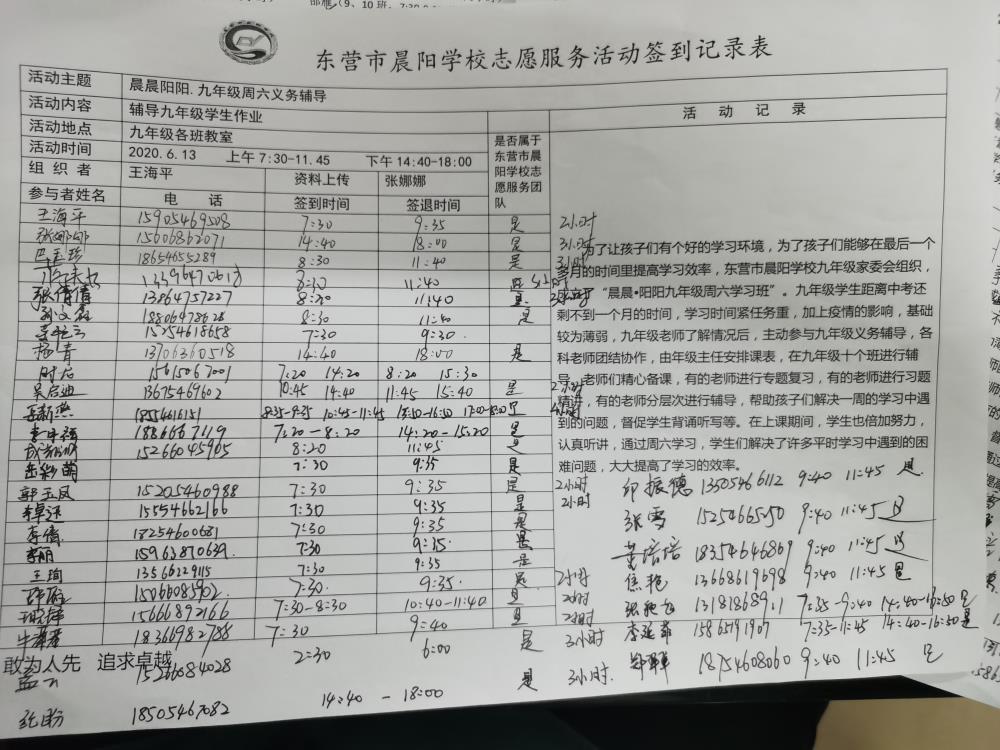 东营市晨阳学校志愿服务活动签到记录表
活动主题 晨晨阳阳.九年级周六义务辅导
活动内容 辅导九年级学生作业
活动地点 九年级各班教室
活动时间 2020.6.13 上午7:30-11.45 下午14:40-18:00
组织者 王海平 资料上传 张娜娜
参与者姓名 电话 签到时间 签退时间 是否属于东营市晨阳学校志愿服务团队
活动记录
王海平 15905469508 7:30 9:35 是 2小时
张娜娜 15606862071 14:40 18:00 是 3小时
18654655289 8:30 11:40 是 3小时
8:30 11:40 是
张倩倩 13864757227 8:20 11:40 是
18806478628 8:30 11:40 是
15254618658 7:30 9:30
杨青 13706360518 14:40 18:00 是
7:20 14:20 8:20 15:30
吴启迪 13675469602 10:45 14:40 11:45 15:40 是 2小时
8:35-9:35 10:45-11:45
7:20-8:20 14:20-15:20 是
15266045905 8:20 11:45 是
7:30 9:35 是
郭玉凤 15205460988 7:30 9:35 是 2小时
15554662166 7:30 9:35 是 2小时
李倩 18254600681 7:30 9:35 是
李丽 15963870639 7:30 9:35 是
王珣 13566229115 7:30 9:35 是
15066085902 7:30 9:35 是 2小时
15666892166 7:30-8:30 10:40-11:40 是 2小时
18366982788 7:30 9:40 是 2小时
敢为人先 追求卓越
孟 15266084028 2:30 6:00 是 3小时
张盼 18505467082 14:40-18:00 是 3小时
为了让孩子们有个好的学习环境，为了孩子们能够在最后一个
多月的时间里提高学习效率，东营市晨阳学校九年级家委会组织，
“晨晨•阳阳九年级周六学习班”。九年级学生距离中考还
剩不到一个月的时间，学习时间紧任务重，加上疫情的影响，基础
较为薄弱，九年级老师了解情况后，主动参与九年级义务辅导，各
科老师团结协作，由年级主任安排课表，在九年级十个班进行辅
导，老师们精心备课，有的老师进行专题复习，有的老师进行习题
精讲，有的老师分层次进行辅导，帮助孩子们解决一周的学习中遇
到的问题，督促学生背诵听写等。在上课期间，学生也倍加努力，
认真听讲，通过周六学习，学生们解决了许多平时学习中遇到的困
难问题，大大提高了学习的效率。
邱振德 13505466112 9:40 11:45 是
张雪 15254665150 9:40 11:45 是
黄培培 18354646869 9:40 11:45 是
焦艳 13668619698 9:40 11:45 是
7:35-9:40 14:40-16:50 是
15865791907 7:35-11:45 14:40-16:50 是
18754608060 9:40 11:45 是